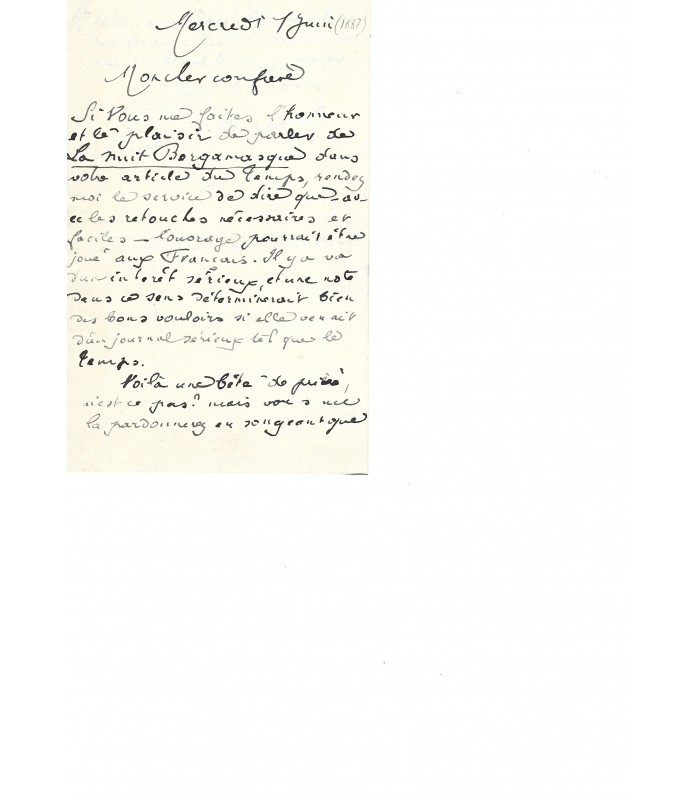 Mercredi 1 Juin (1887)
Mon cher confrère
Si vous me faites l'honneur
et le plaisir de parler de
La Nuit Bergamasque dans
votre article du Temps, rendez
moi le service de dire que - av-
ec les retouches nécessaires et
faciles - l'ouvrage pourrait être
joué aux Français. Il y a va
d'un interêt sérieux, et une note
dans ce sens déterminerait bien
des bons vouloirs si elle venait
d'un journal sérieux tel que le
Temps.
Voilà une bête de prière,
n'est ce pas? mais vous me
la pardonnerez en songeant que